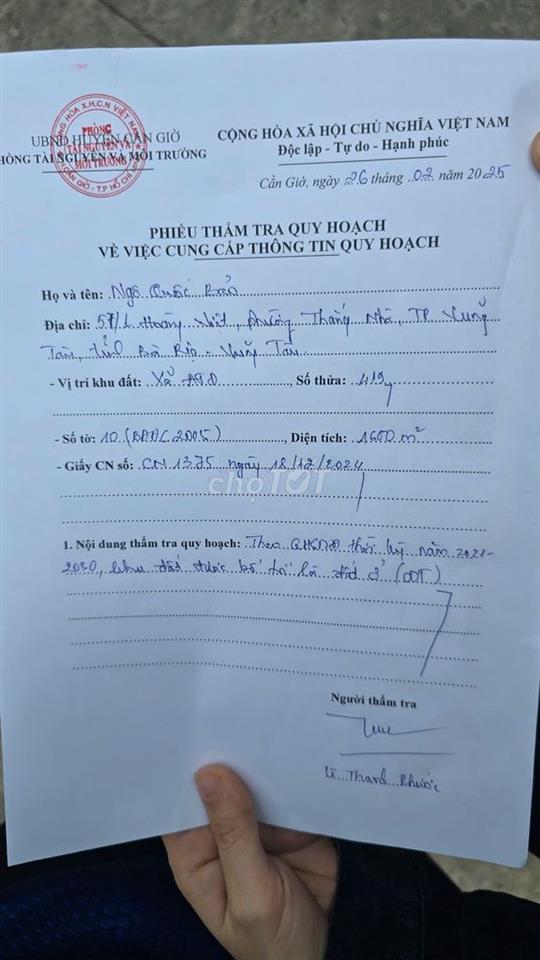 UBND HUYỆN CẦN GIỜ
PHÒNG TÀI NGUYÊN VÀ MÔI TRƯỜNG
CỘNG HÒA XÃ HỘI CHỦ NGHĨA VIỆT NAM
Độc lập - Tự do - Hạnh phúc
PHÒNG
TÀI NGUYÊN VÀ
MÔI TRƯỜNG
Cần Giờ, ngày 26 tháng 02 năm 2025
PHIẾU THẨM TRA QUY HOẠCH
VỀ VIỆC CUNG CẤP THÔNG TIN QUY HOẠCH
Họ và tên: Ngô Quốc Bảo
Địa chỉ: 57/ Hoàng Việt, phường Thắng Nhì, TP Vũng
Tàu, tỉnh Bà Rịa - Vũng Tàu
- Vị trí khu đất: Xã ATĐ, Số thửa: 419
- Số tờ: 10 (BĐĐC 2005), Diện tích: 1600 m²
- Giấy CN số: CN 1375 ngày 18/12/2024
chợTỐT
1. Nội dung thẩm tra quy hoạch: Theo QHSDĐ thời kỳ năm 2021-
2030, khu đất được bố trí là đất ở (ODT)
Người thẩm tra
Lê Thanh Phước